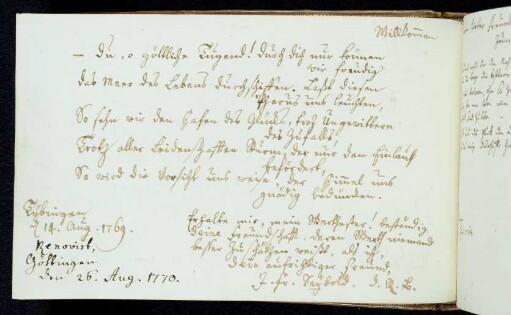 Willkommen
— Du, o göttliche Tugend! durch dich nur können
wir freudig
das Meer des Lebens durchschiffen. Laßt diesen
Pharus uns leuchten,
So sehn wir den Hafen des Glücks, trotz Ungewittern
des Zufalls,
Trotz aller Leidenschaften Sturm, der nur den Einlauf
befördert,
So wird die Vorsicht uns weise, der Himmel uns
gnädig bedünken.
Tübingen
d. 14. Aug. 1769.
Renovirt,
Göttingen
den 26. Aug. 1770.
Erhalte mir, mein Werthester! beständig
deine Freundschaft, deren Werth niemand
besser zu schätzen weißt, als ich,
dein aufrichtiger Freund,
J. Fr. Seybold. d. R. B.